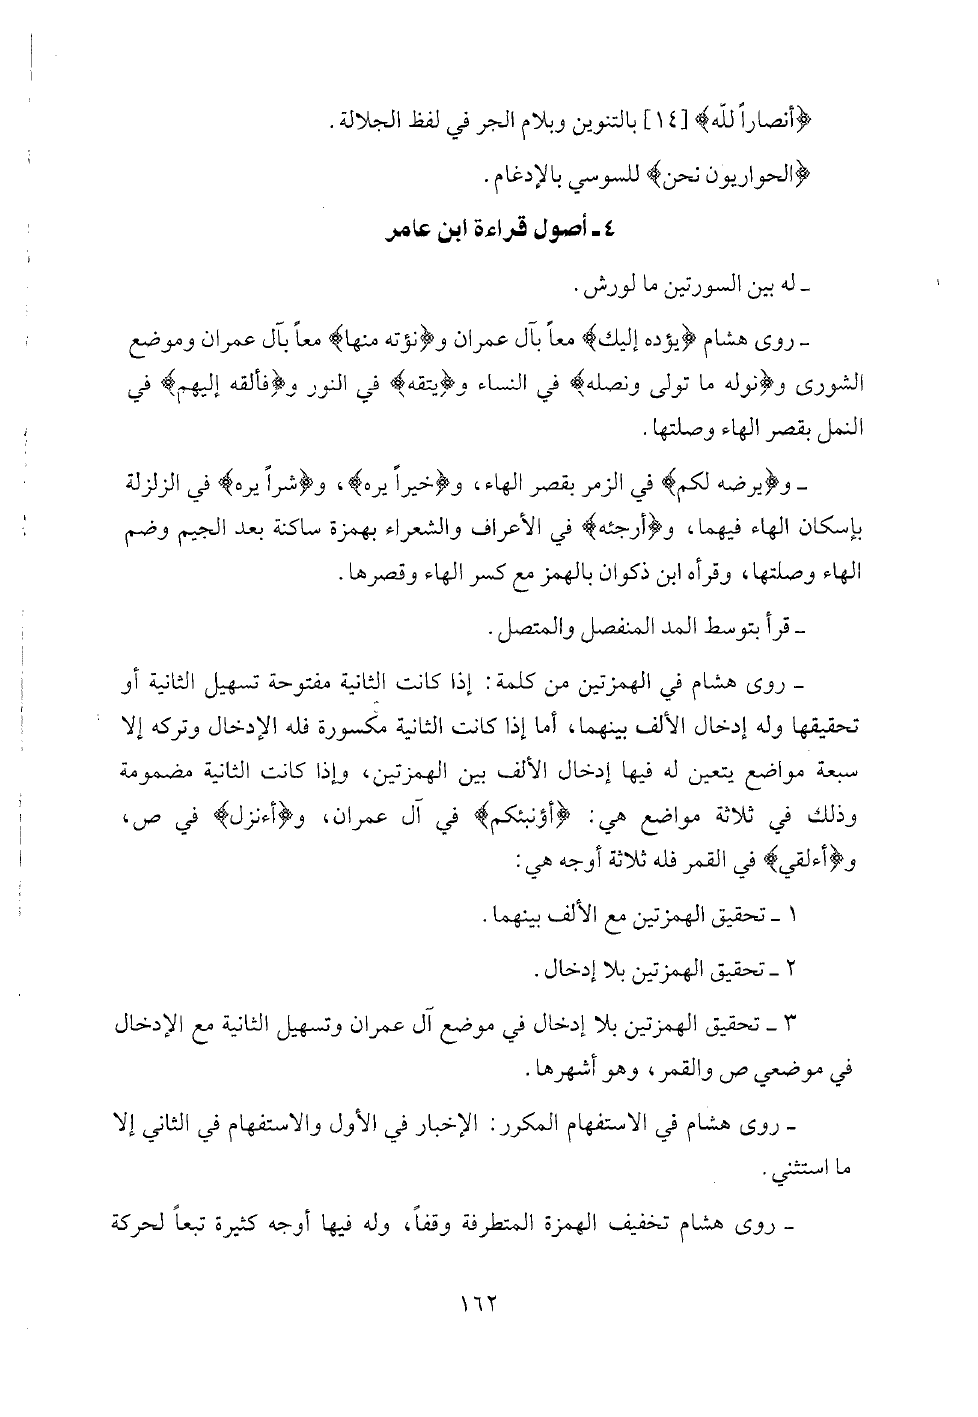 ﴿أنصاراً للّه﴾ [١٤] بالتنوين وبلام الجر في لفظ الجلالة.
﴿الحواريون نحن﴾ للسوسي بالإدغام.
٤ ـ أصول قراءة ابن عامر
ـ له بين السورتين ما لورش.
ـ روى هشام ﴿يؤده إليك﴾ معاً بآل عمران و﴿نؤته منها﴾ معاً بآل عمران وموضع
الشورى و﴿نوله ما تولى ونصله﴾ في النساء و﴿يتقه﴾ في النور و﴿فألقه إليهم﴾ في
النمل بقصر الهاء وصلتها.
ـ و﴿يرضه لكم﴾ في الزمر بقصر الهاء، و﴿خيراً يره﴾، و﴿شراً يره﴾ في الزلزلة
بإسكان الهاء فيهما، و﴿أرجئه﴾ في الأعراف والشعراء بهمزة ساكنة بعد الجيم وضم
الهاء وصلتها، وقرأه ابن ذكوان بالهمز مع كسر الهاء وقصرها.
ـ قرأ بتوسط المد المنفصل والمتصل.
ـ روى هشام في الهمزتين من كلمة: إذا كانت الثانية مفتوحة تسهيل الثانية أو
تحقيقها وله إدخال الألف بينهما، أما إذا كانت الثانية مكسورة فله الإدخال وتركه إلا
سبعة مواضع يتعين له فيها إدخال الألف بين الهمزتين، وإذا كانت الثانية مضمومة
وذلك في ثلاثة مواضع هي: ﴿أؤنبئكم﴾ في آل عمران، و﴿أءنزل﴾ في ص،
و﴿أءلقي﴾ في القمر فله ثلاثة أوجه هي:
١ ـ تحقيق الهمزتين مع الألف بينهما.
٢ ـ تحقيق الهمزتين بلا إدخال.
٣ ـ تحقيق الهمزتين بلا إدخال في موضع آل عمران وتسهيل الثانية مع الإدخال
في موضعي ص والقمر، وهو أشهرها.
ـ روى هشام في الاستفهام المكرر: الإخبار في الأول والاستفهام في الثاني إلا
ما استثني.
ـ روى هشام تخفيف الهمزة المتطرفة وقفاً، وله فيها أوجه كثيرة تبعاً لحركة
١٦٢